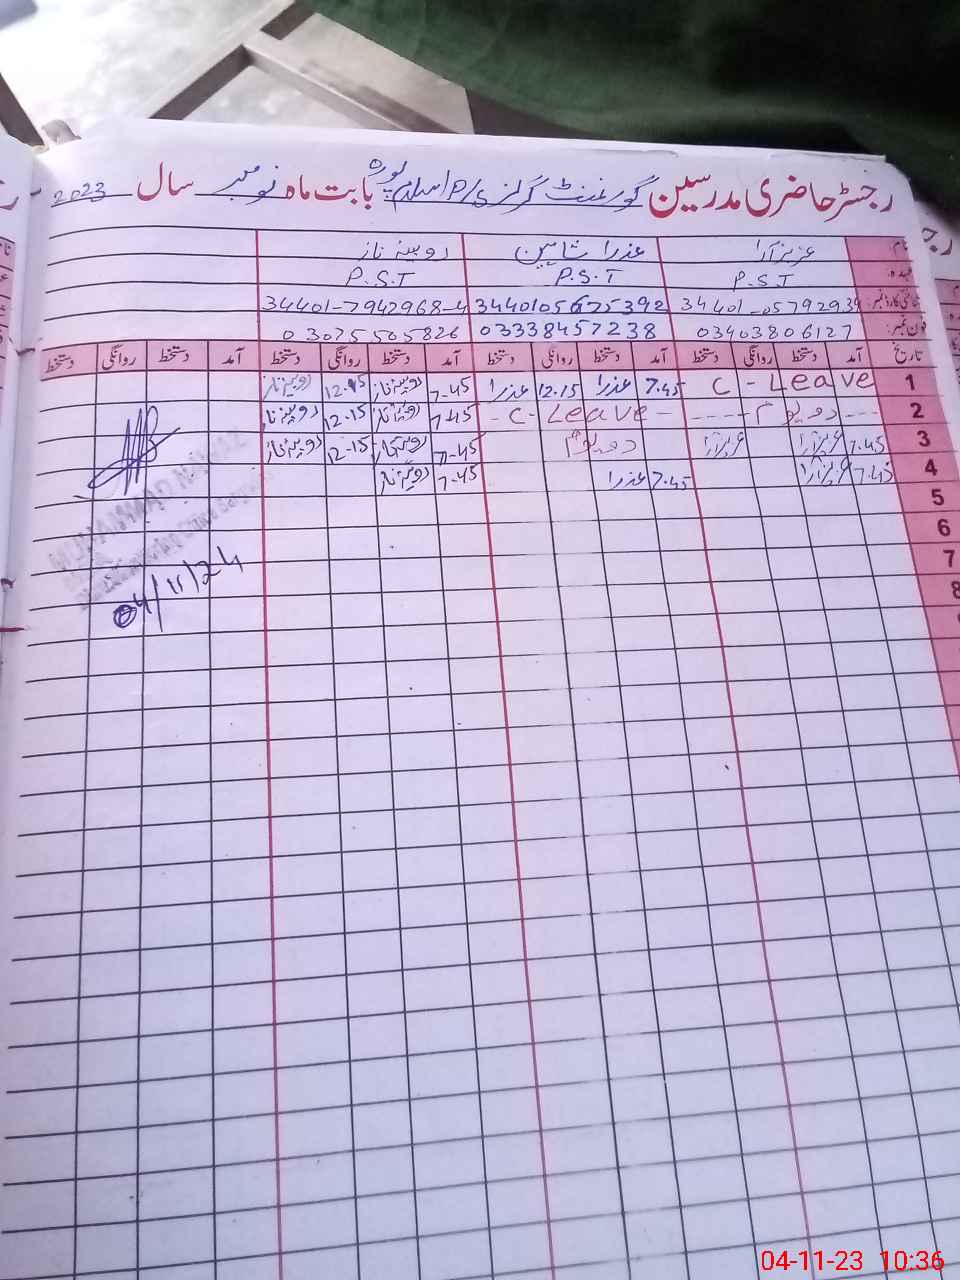 رجسٹر حاضری مدرسین گورنمنٹ گرلز P/S اسلام پورہ بابت ماہ نومبر سال 2023
نام عزیز آرا عذرا شاہین روبینہ ناز
عہدہ: P.S.T P.S.T P.S.T
شناختی کارڈ نمبر: 34401-0579293 3440105675392 34401-7942968-4
فون نمبر: 03403806127 03338457238 03075505826
تاریخ آمد دستخط روانگی دستخط آمد دستخط روانگی دستخط آمد دستخط روانگی دستخط آمد دستخط روانگی دستخط
1 C - Leave 7.45 عذرا 12.15 عذرا 7-45 روبینہ ناز 12-15 روبینہ ناز
2 - C - Leave - 7-45 روبینہ ناز 12-15 روبینہ ناز
3 7.45 عزیز آرا عزیز آرا 7-45 روبینہ ناز 12-15 روبینہ ناز
4 7.45 عزیز آرا 7.45 عذرا 7-45 روبینہ ناز
5
6
7
8
MUHAMMAD NAWAZ
04/11/24
04-11-23 10:36